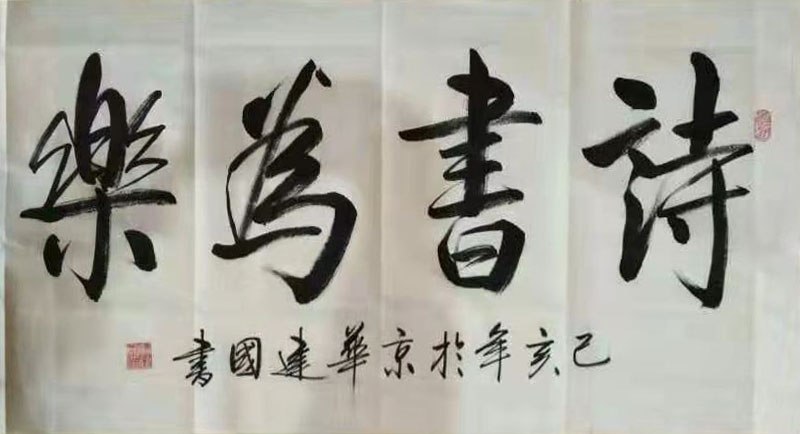 詩書為樂
己亥年於京華建國書